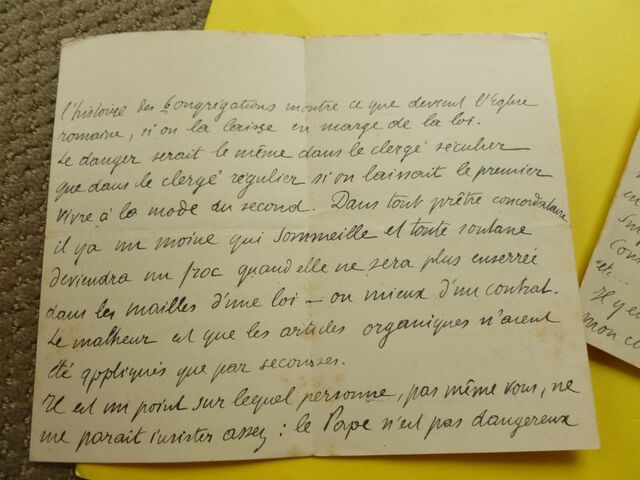 l'histoire des Congrégations montre ce que devient l'Eglise
romaine, si on la laisse en marge de la loi.
Le danger serait le même dans le clergé séculier
que dans le clergé régulier si on laissait le premier
vivre à la mode du second. Dans tout prêtre concordataire
il y a un moine qui sommeille et toute soutane
deviendra un froc quand elle ne sera plus enserrée
dans les mailles d'une loi — ou mieux d'un contrat.
Le malheur est que les articles organiques n'aient
été appliqués que par secousses.
Il est un point sur lequel personne, pas même vous, ne
me parait insister assez : le Pape n'est pas dangereux
en
Cons
etc...
Il y e
mon co